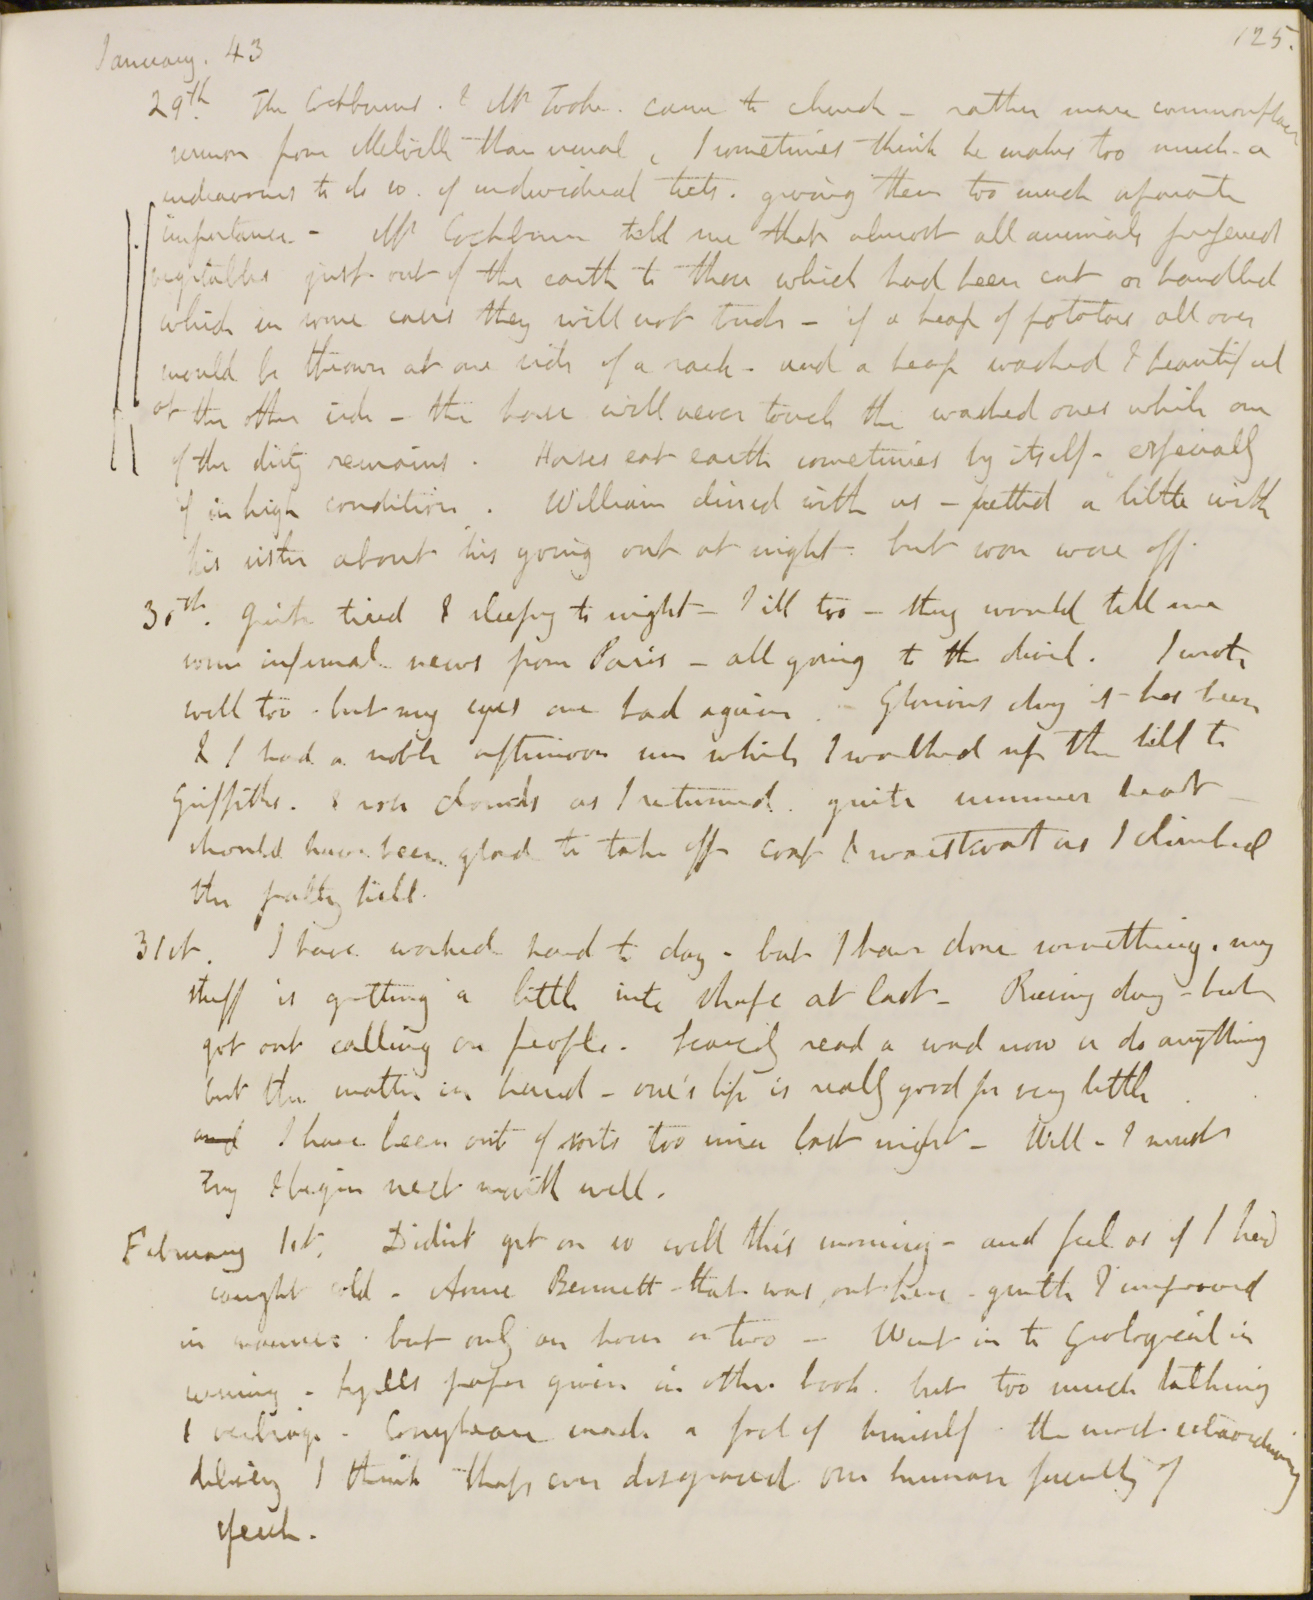 January. 43
125.
29th. The Cockburns. & Mr Tooke. came to church - rather more commonplace
sermon from Melvill than usual, I sometimes think he makes too much - or
endeavours to do so. of individual texts. giving them too much separate
importance - Mr Cockburn told me that almost all animals preferred
vegetables just out of the earth to those which had been cut or handled
which in some cases they will not touch - if a heap of potatoes all over
would be thrown at one side of a rack - and a heap washed & beautiful
at the other side - the horse will never touch the washed ones while one
of the dirty remains. Horses eat earth sometimes by itself - especially
if in high condition. William dined with us - petted a little with
his sister about his going out at night. but soon wore off.
30th. Quite tired & sleepy to night - & ill too - they would tell me
some infernal news from Paris - all going to the devil. I wrote
well too. but my eyes are bad again. Glorious day it has been
& I had a noble afternoon which I walked up the hill to
Griffiths. & clouds as I returned. quite summer heat -
should have been glad to take off coat & waistcoat as I climbed
the paltry hill.
31st. I have worked hard to day - but I have done something. my
stuff is getting a little into shape at last - Rainy day - but
got out calling on people. Scarcely read a word now or do anything
but the matter in hand - one's life is really good for very little
and I have been out of sorts too since last night - Well - I must
try & begin next month well.
February 1st. Didn't get on so well this morning - and feel as if I had
caught cold - Anne Bennett that was, out here - quite & improved
in manner. but only an hour or two - Went in to Geological in
evening - Lyells paper given in other book. but too much talking
& verbiage - Conybeare made a fool of himself. the most extraordinary
delivery I think that ever disgraced our human faculty of
speech.